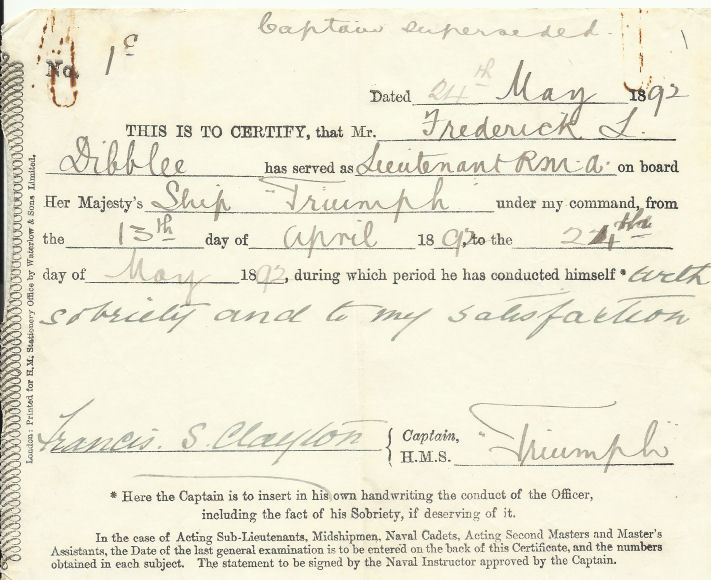 Captain superseded.
No. 1c
Dated 24th May 1892
THIS IS TO CERTIFY, that Mr. Frederick L.
Dibblee has served as Lieutenant R.M.A. on board
Her Majesty's Ship "Triumph" under my command, from
the 13th day of April 1892, to the 24th
day of May 1892, during which period he has conducted himself * with
sobriety and to my satisfaction
Francis. S. Clayton { Captain, H.M.S. "Triumph"
* Here the Captain is to insert in his own handwriting the conduct of the Officer,
including the fact of his Sobriety, if deserving of it.
In the case of Acting Sub-Lieutenants, Midshipmen, Naval Cadets, Acting Second Masters and Master's
Assistants, the Date of the last general examination is to be entered on the back of this Certificate, and the numbers
obtained in each subject. The statement to be signed by the Naval Instructor approved by the Captain.
London: Printed for H.M. Stationery Office by Waterlow & Sons Limited.